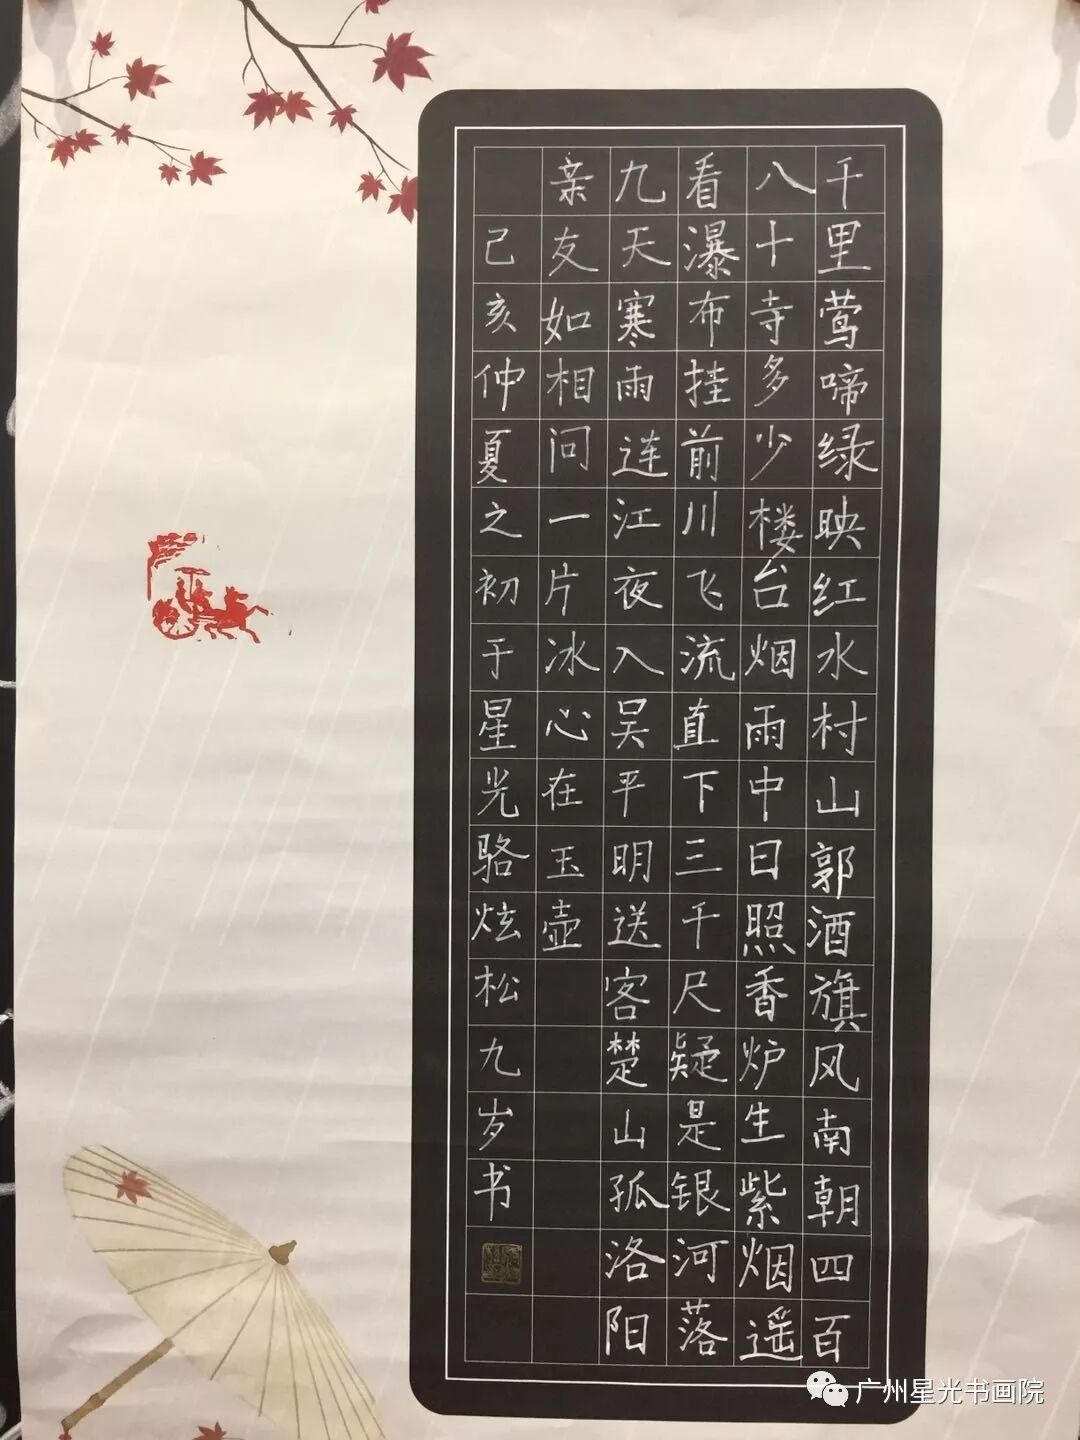 千里莺啼绿映红水村山郭酒旗风南朝四百
八十寺多少楼台烟雨中日照香炉生紫烟遥
看瀑布挂前川飞流直下三千尺疑是银河落
九天寒雨连江夜入吴平明送客楚山孤洛阳
亲友如相问一片冰心在玉壶
己亥仲夏之初于星光骆炫松九岁书
广州星光书画院